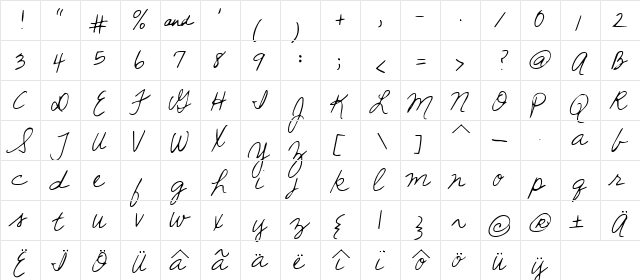 ! " # % and ' ( ) + , - . / 0 1 2
3 4 5 6 7 8 9 : ; < = > ? @ A B
C D E F G H I J K L M N O P Q R
S T U V W X Y Z [ \ ] ^ _ . a b
c d e f g h i j k l m n o p q r
s t u v w x y z { | } ~ © ® ± Ä
Ë Ï Ö Ü â ã ä ë î ï ô ö ü ÿ